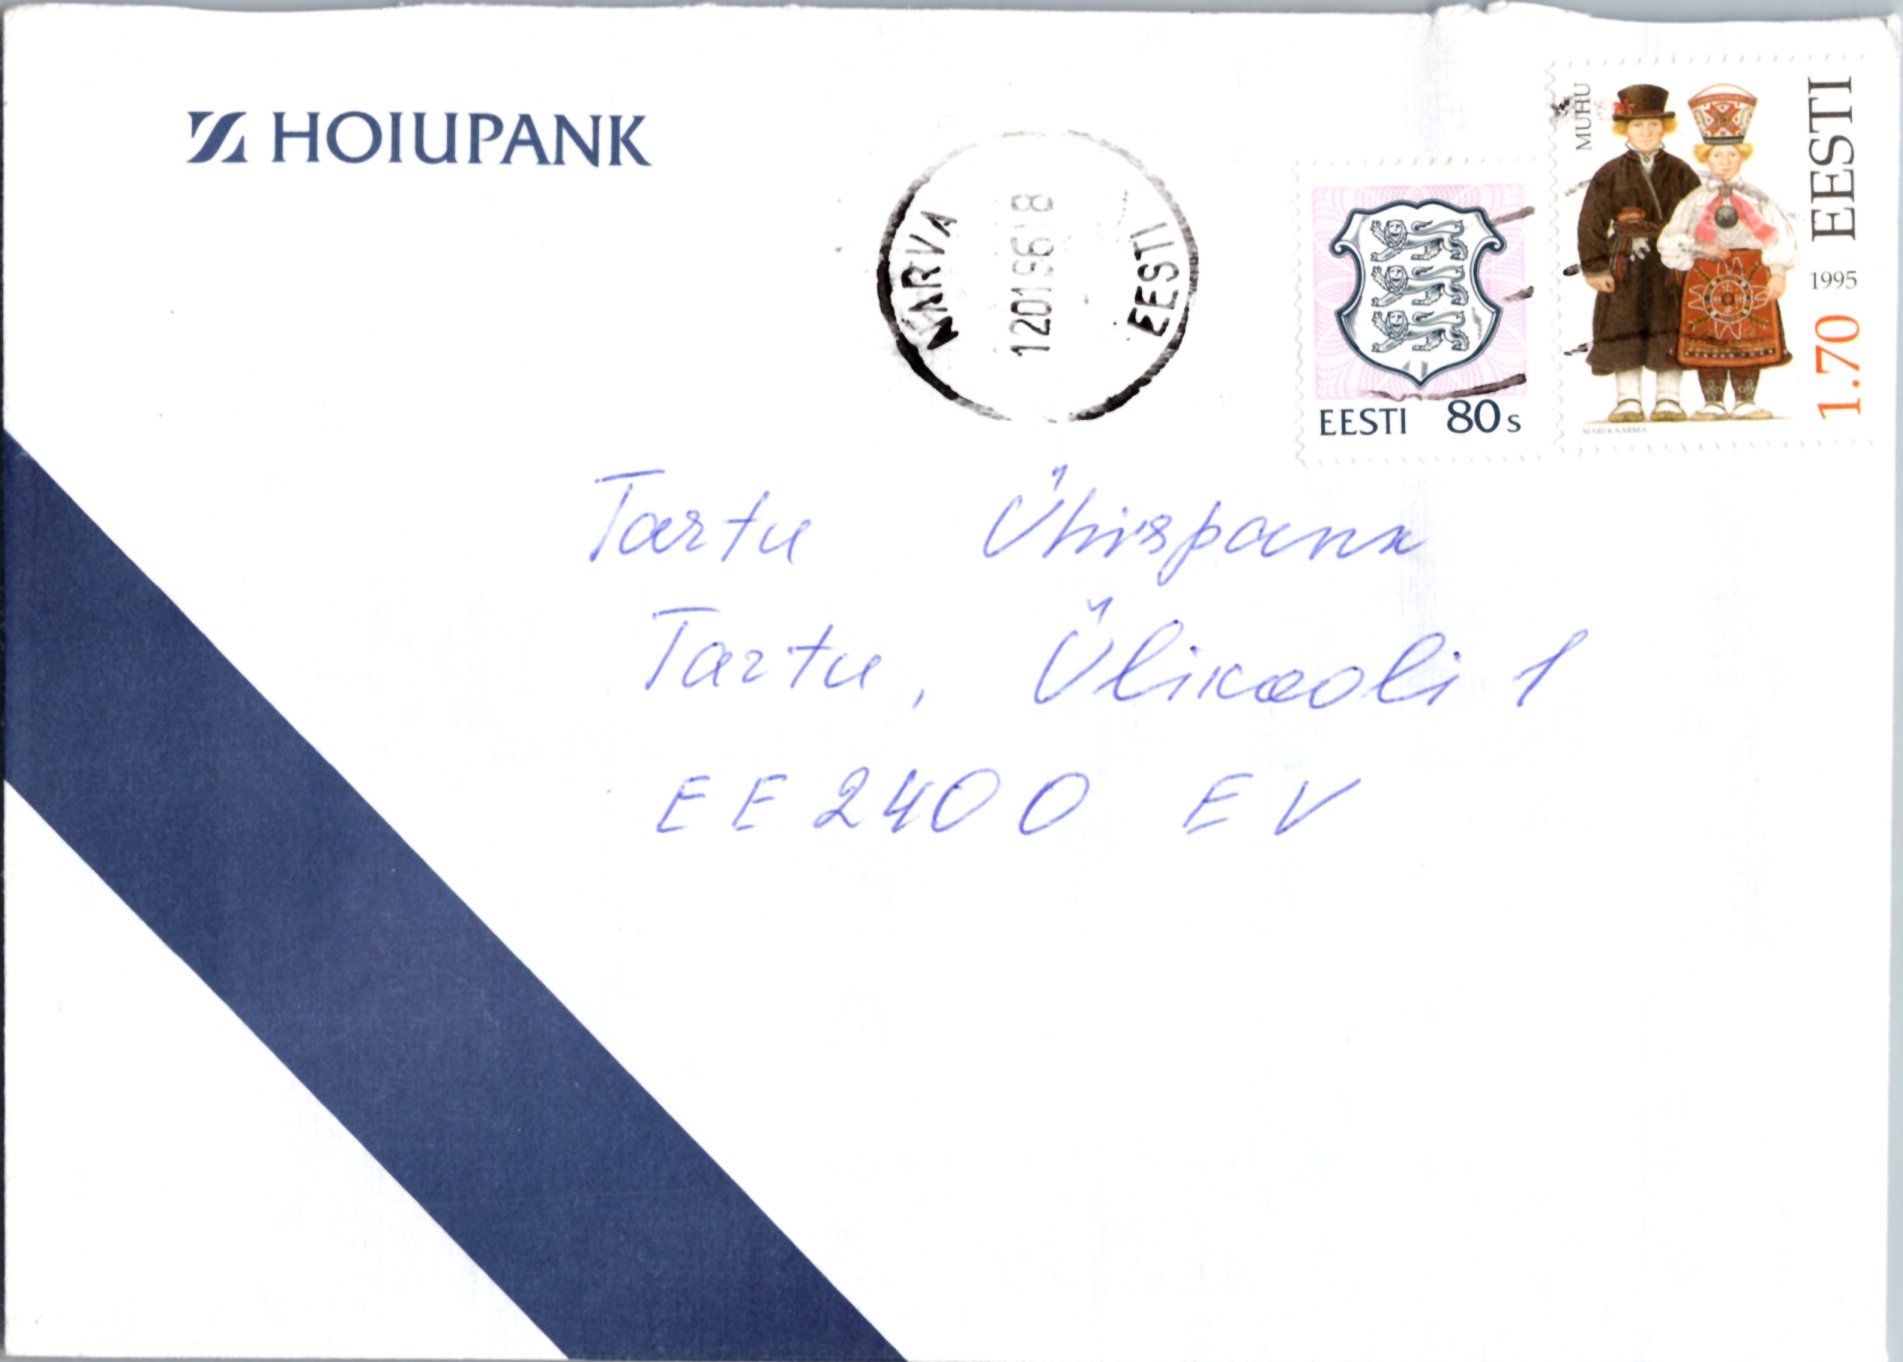 HOIUPANK
NARVA
12019618
EESTI
EESTI 80s
MUHU
EESTI
1995
1.70
MARI KAARMA
Tartu Ühispank
Tartu, Ülikooli 1
EE2400 EV